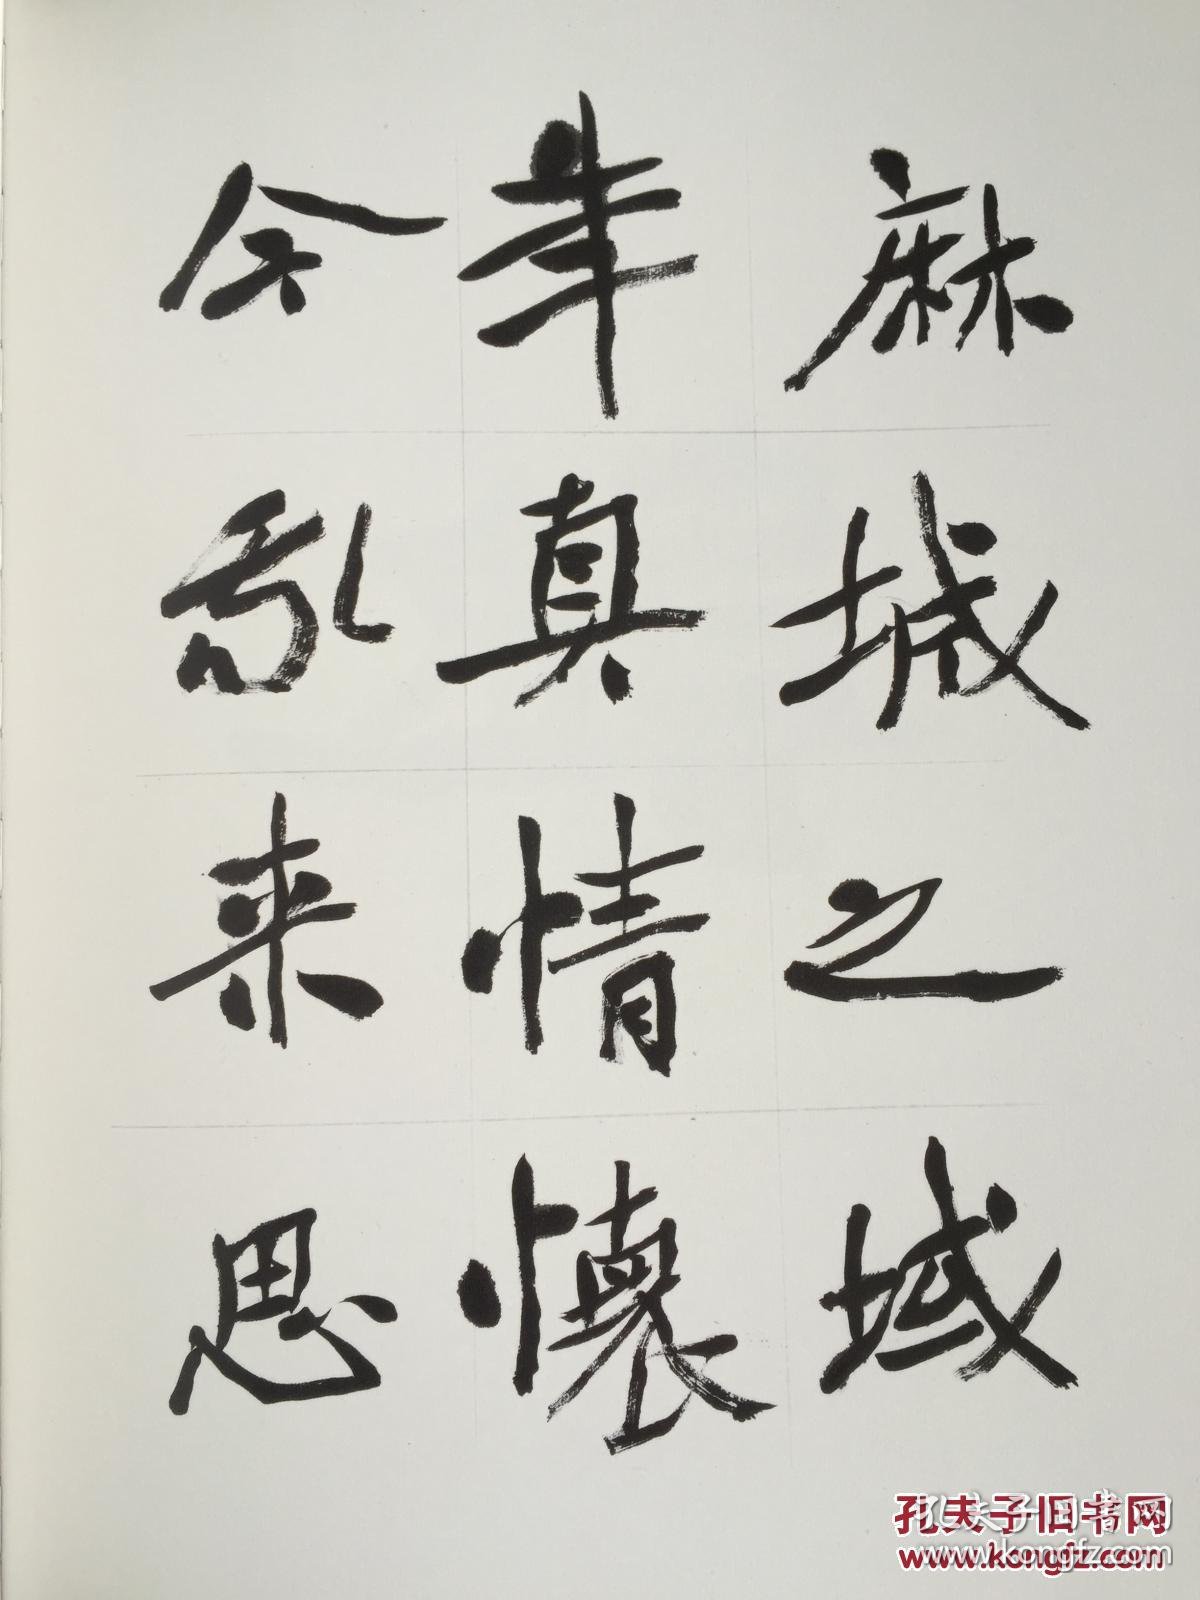 麻城之域
年真情懷
今乱来思
孔夫子旧书网
www.kongfz.com